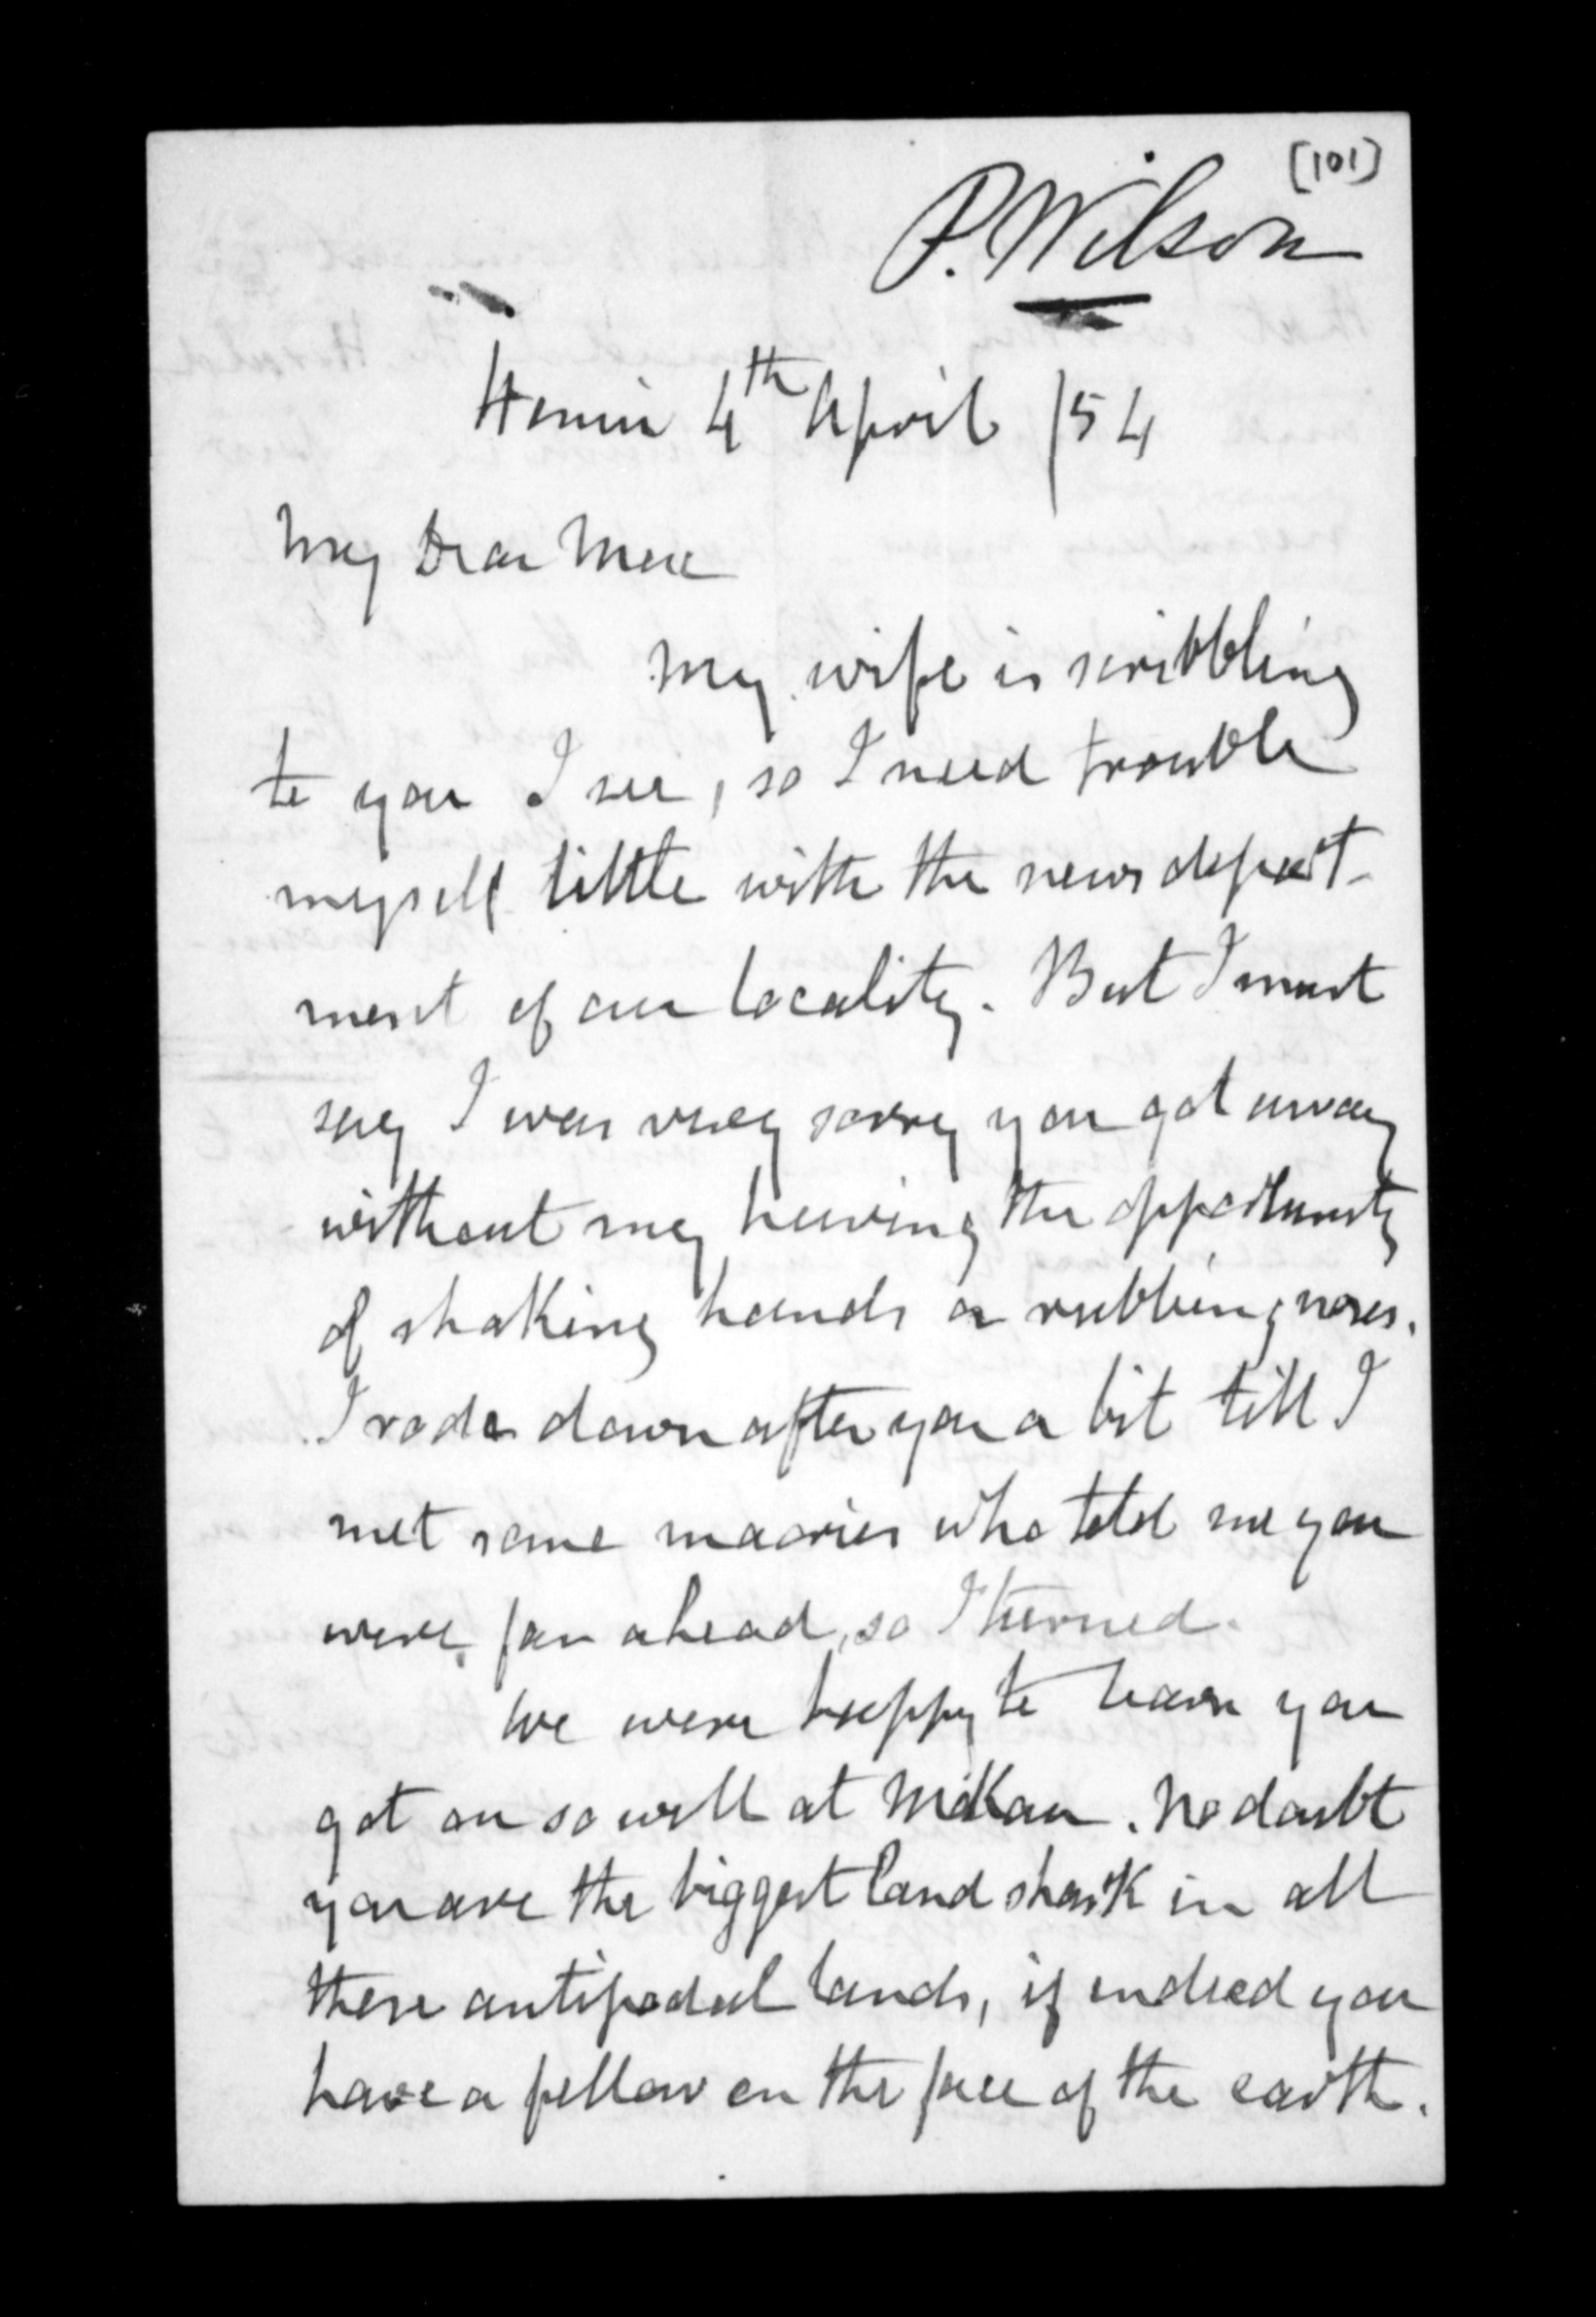 [101]
P. Wilson
Henui 4th April /54
My Dear Mac
My wife is scribbling
to you I see, so I need trouble
myself little with the news depart-
ment of our locality. But I must
say I was very sorry you got away
without my having the opportunity
of shaking hands or rubbing noses.
I rode down after you a bit till I
met some maories who told me you
were far ahead, so I turned.
We were happy to learn you
got on so well at Mokau. No doubt
you are the biggest land shark in all
these antipodal lands, if indeed you
have a fellow on the face of the earth.